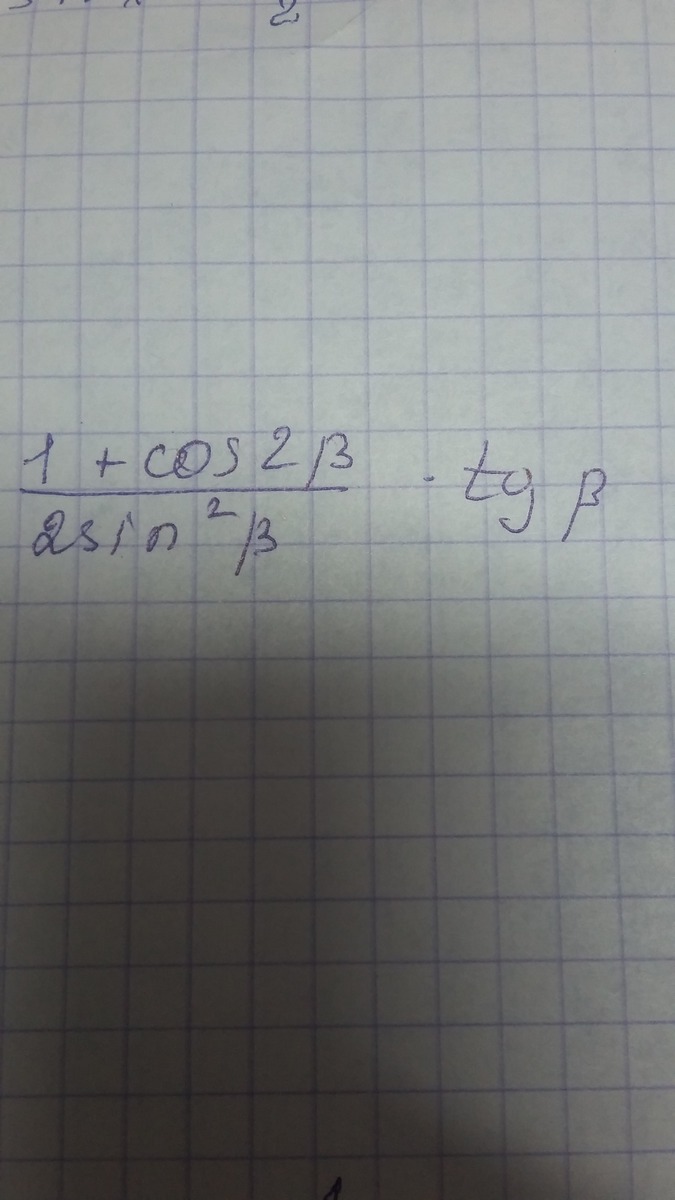 2
1 + cos 2β
2sin²β · tg β